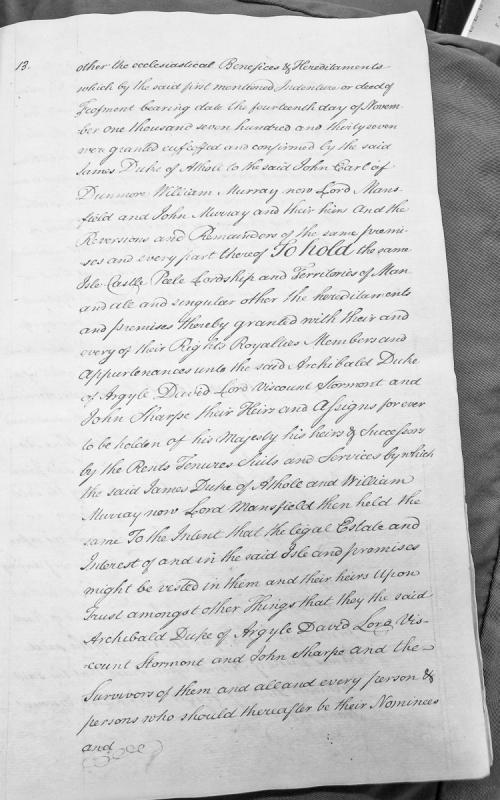 13.
other the ecclesiastical Benefices & Hereditaments
which by the said first mentioned Indenture or deed of
Feofment bearing date the fourteenth day of Novem
ber one thousand seven hundred and thirty seven
were granted enfeoffed and confirmed by the said
James Duke of Atholl to the said John Earl of
Dunmore William Murray now Lord Mans
field and John Murray and their heirs And the
Reversions and Remainders of the same premi
ses and every part thereof To hold the same
Isle Castle Peele Lordship and Territories of Man
and all and singular other the hereditaments
and premises thereby granted with their and
every of their Rights Royalties Members and
Appurtenances unto the said Archibald Duke
of Argyle David Lord Viscount Stormont and
John Sharpe their Heirs and Assigns for ever
to be holden of his Majesty his heirs & Successors
by the Rents Tenures Suits and Services by which
the said James Duke of Atholl and William
Murray now Lord Mansfield then held the
same To the Intent that the legal Estate and
Interest of and in the said Isle and premises
might be vested in them and their heirs Upon
Trust amongst other Things that they the said
Archibald Duke of Argyle David Lord Vis-
count Stormont and John Sharpe and the
Survivors of them and all and every person &
persons who should thereafter be their Nominees
and